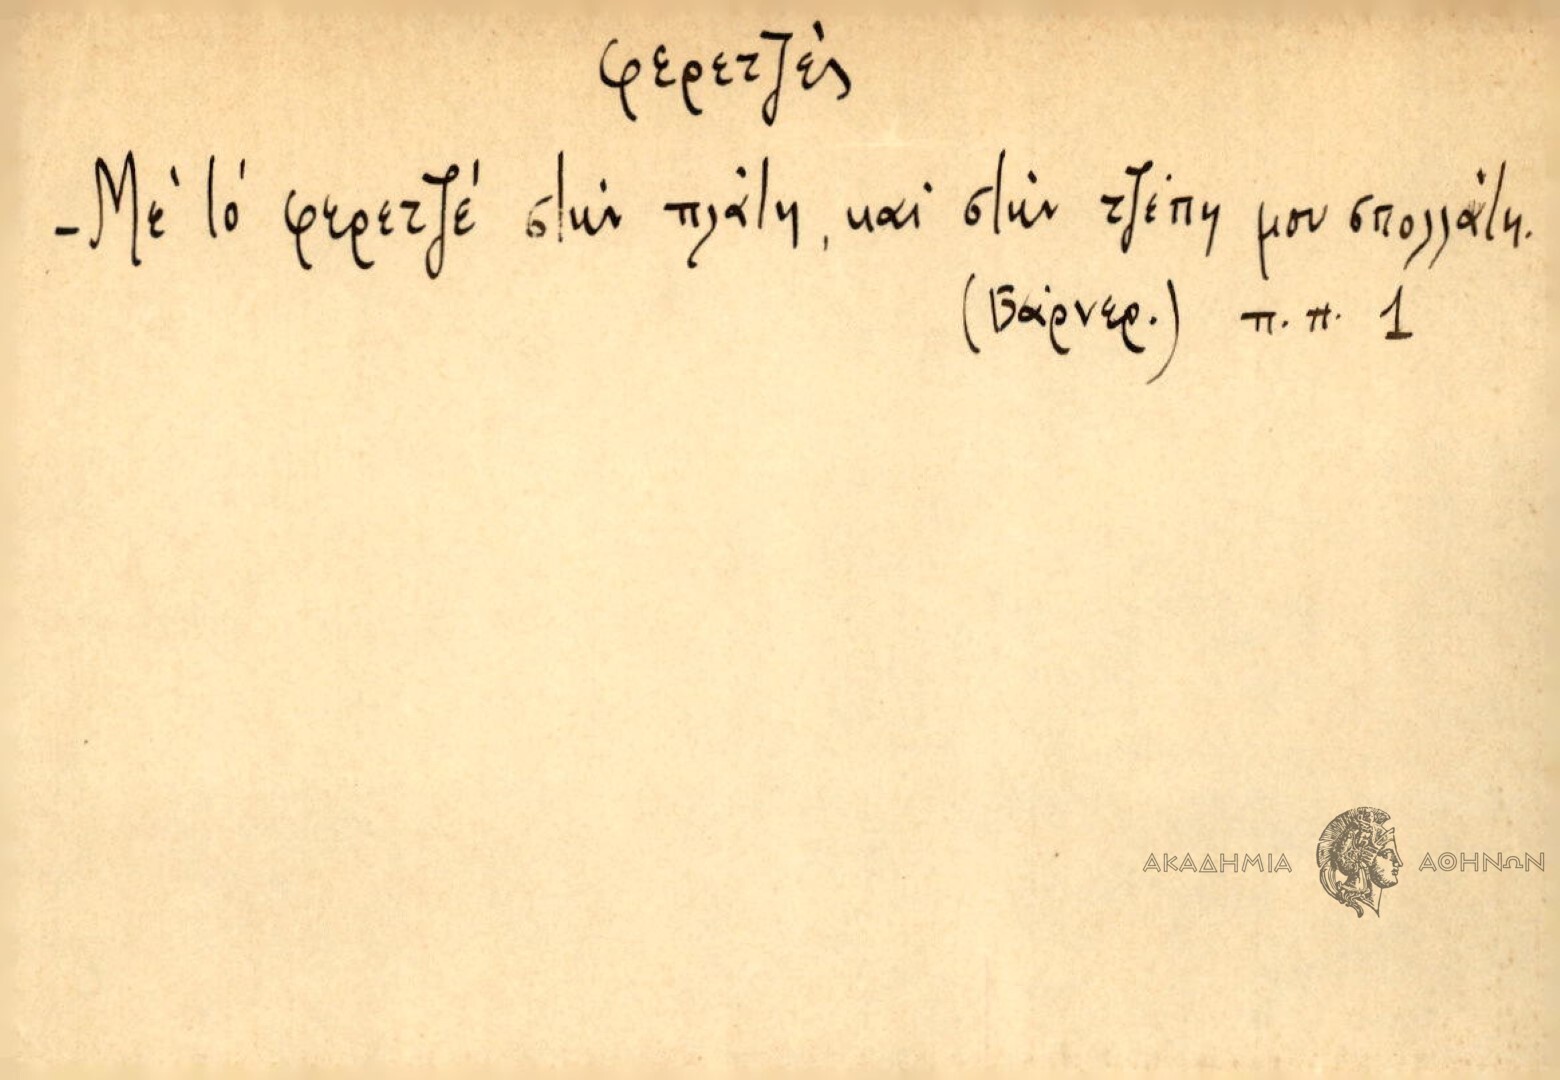 φερετζὲς
-Μὲ τό φερετζέ στὴν πλάτη, καὶ στὴν τζέπη μου σπολλάτη.
(Βάρνερ.) π. π. 1
ΑΚΑΔΗΜΙΑ ΑΘΗΝΩΝ